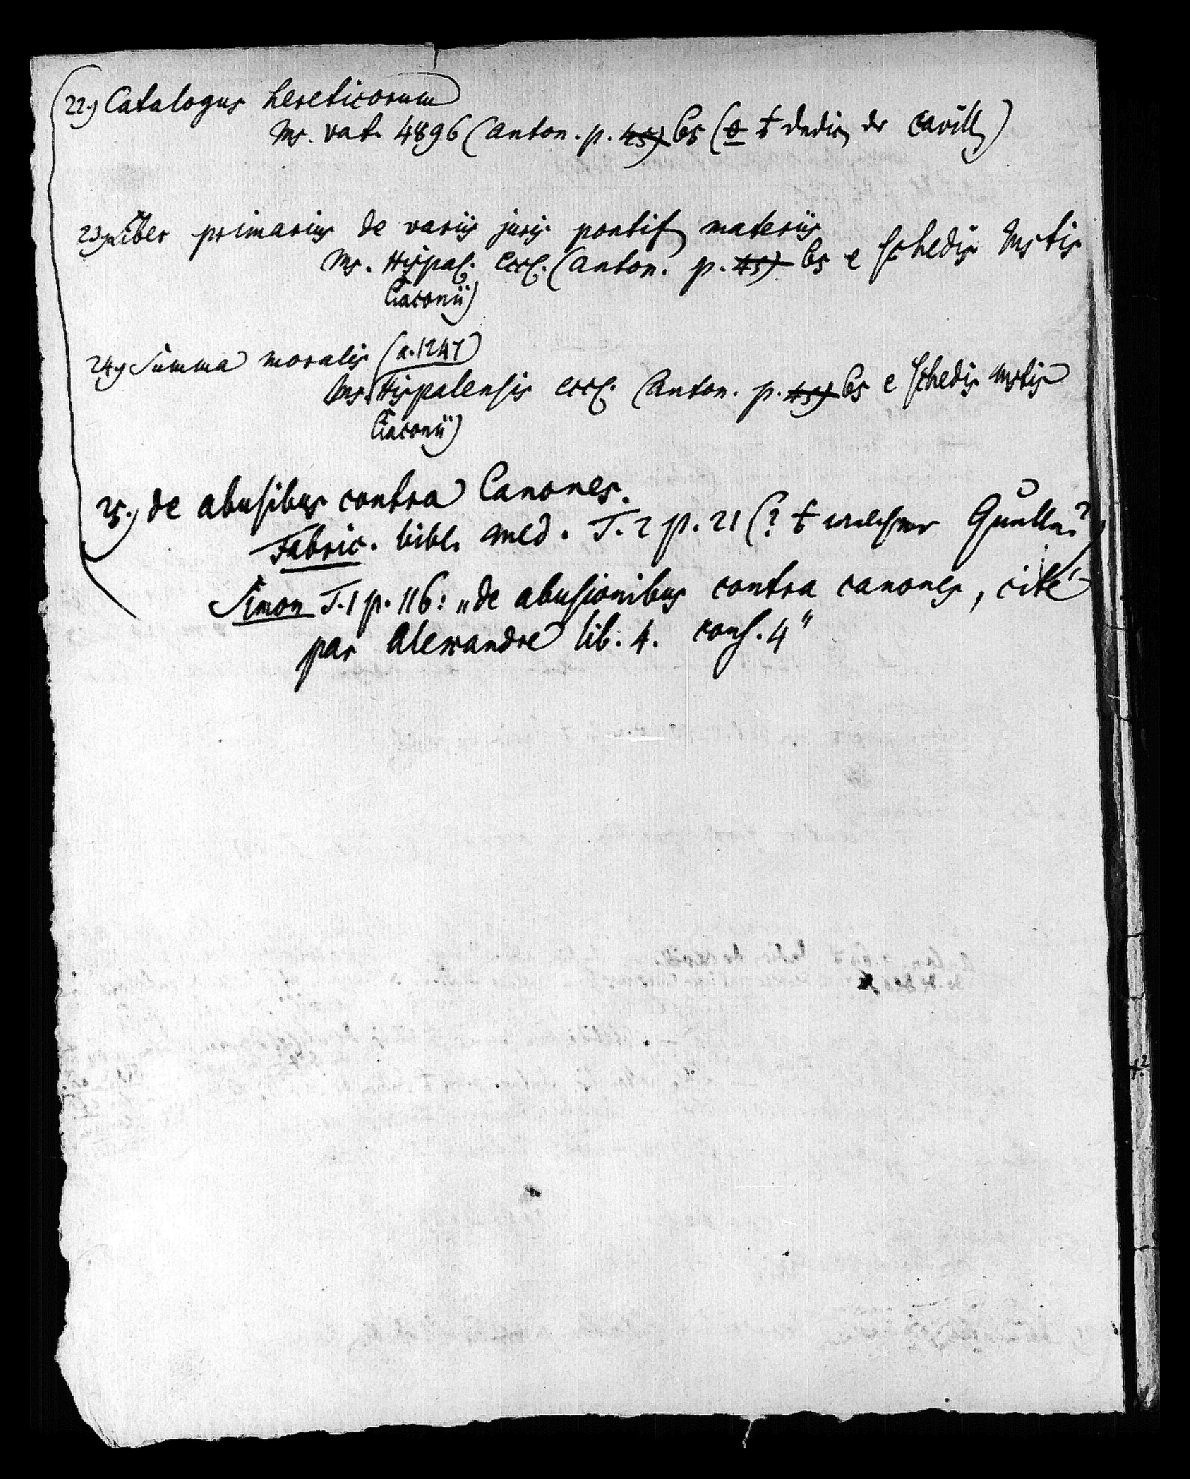 22.) Catalogus hereticorum
Ms. vat. 4896 (Anton. p. 45) 65 (
23.) Liber primarius de variis juris pontif materiis
Ms. Hispal. Eccl. (Anton. p. 45) 65 e schedis Mstis
Ciaconii)
24.) Summa moralis (a. 1247)
Ms. Hispalensis eccl. (Anton. p. 45) 65 e schedis Mstis
Ciaconii)
25.) de abusibus contra Canones.
Fabric. bibl. med. T. 2 p. 21 (? Quelle?)
Simon T. 1 p. 116: „de abusionibus contra canones, cité
par Alexandre lib. 4. cons. 4“